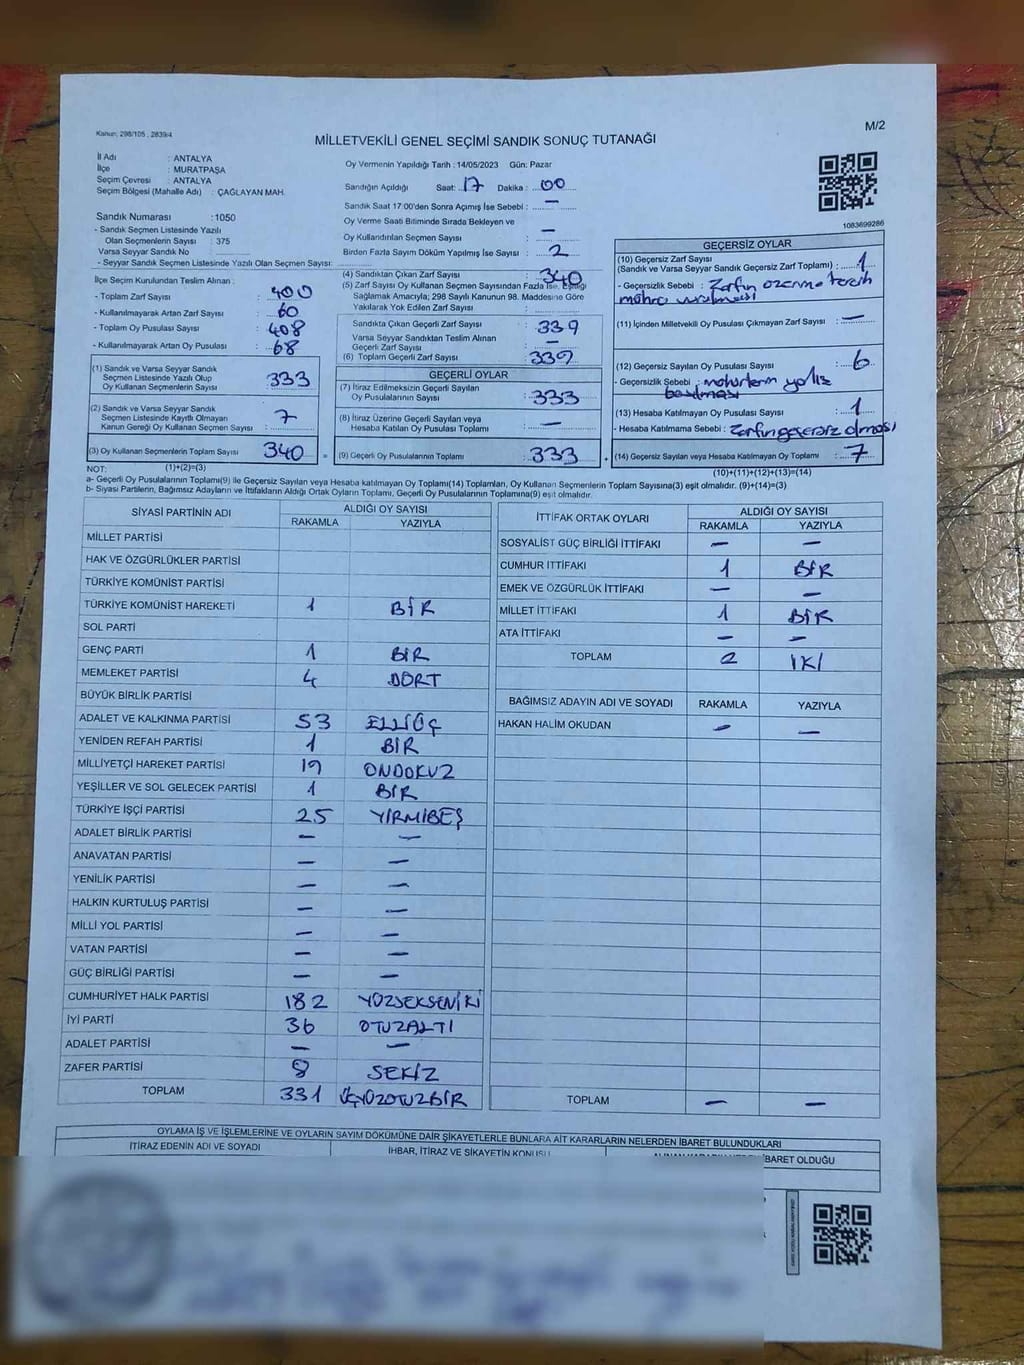 Kanun: 298/105 , 2839/4
M/2
MİLLETVEKİLİ GENEL SEÇİMİ SANDIK SONUÇ TUTANAĞI
İl Adı : ANTALYA
İlçe : MURATPAŞA
Seçim Çevresi : ANTALYA
Seçim Bölgesi (Mahalle Adı) : ÇAĞLAYAN MAH.
Sandık Numarası :1050
- Sandık Seçmen Listesinde Yazılı
Olan Seçmenlerin Sayısı : 375
Varsa Seyyar Sandık No
- Seyyar Sandık Seçmen Listesinde Yazılı Olan Seçmen Sayısı:
İlçe Seçim Kurulundan Teslim Alınan :
- Toplam Zarf Sayısı : 400
- Kullanılmayarak Artan Zarf Sayısı : 60
- Toplam Oy Pusulası Sayısı : 408
- Kullanılmayarak Artan Oy Pusulası : 68
(1) Sandık ve Varsa Seyyar Sandık
Seçmen Listesinde Yazılı Olup
Oy Kullanan Seçmenlerin Sayısı : 333
(2) Sandık ve Varsa Seyyar Sandık
Seçmen Listesinde Kayıtlı Olmayan
Kanun Gereği Oy Kullanan Seçmen Sayısı : 7
(3) Oy Kullanan Seçmenlerin Toplam Sayısı : 340
Oy Vermenin Yapıldığı Tarih : 14/05/2023 Gün: Pazar
Sandığın Açıldığı Saat: 17 Dakika : 00
Sandık Saat 17:00'den Sonra Açılmış İse Sebebi : —
Oy Verme Saati Bitiminde Sırada Bekleyen ve
Oy Kullandırılan Seçmen Sayısı : —
Birden Fazla Sayım Döküm Yapılmış İse Sayısı : 2
(4) Sandıktan Çıkan Zarf Sayısı : 340
(5) Zarf Sayısı Oy Kullanan Seçmen Sayısından Fazla İse, Eşitliği
Sağlamak Amacıyla; 298 Sayılı Kanunun 98. Maddesine Göre
Yakılarak Yok Edilen Zarf Sayısı :
Sandıkta Çıkan Geçerli Zarf Sayısı : 339
Varsa Seyyar Sandıktan Teslim Alınan
Geçerli Zarf Sayısı : —
(6) Toplam Geçerli Zarf Sayısı : 339
GEÇERLİ OYLAR
(7) İtiraz Edilmeksizin Geçerli Sayılan
Oy Pusulalarının Sayısı : 333
(8) İtiraz Üzerine Geçerli Sayılan veya
Hesaba Katılan Oy Pusulası Toplamı : —
= (9) Geçerli Oy Pusulalarının Toplamı : 333 +
1083699286
GEÇERSİZ OYLAR
(10) Geçersiz Zarf Sayısı
(Sandık ve Varsa Seyyar Sandık Geçersiz Zarf Toplamı) : 1
- Geçersizlik Sebebi : Zarfın üzerine tercih
mührü vurulması
(11) İçinden Milletvekili Oy Pusulası Çıkmayan Zarf Sayısı : —
(12) Geçersiz Sayılan Oy Pusulası Sayısı : 6
- Geçersizlik Sebebi : mühürlerin yanlış
basılması
(13) Hesaba Katılmayan Oy Pusulası Sayısı : 1
- Hesaba Katılmama Sebebi : Zarfın geçersiz olması
(14) Geçersiz Sayılan veya Hesaba Katılmayan Oy Toplamı : 7
NOT: (1)+(2)=(3)
(10)+(11)+(12)+(13)=(14)
a- Geçerli Oy Pusulalarının Toplamı(9) ile Geçersiz Sayılan veya Hesaba Katılmayan Oy Toplamı(14) Toplamları, Oy Kullanan Seçmenlerin Toplam Sayısına(3) eşit olmalıdır. (9)+(14)=(3)
b- Siyasi Partilerin, Bağımsız Adayların ve İttifakların Aldığı Ortak Oyların Toplamı, Geçerli Oy Pusulalarının Toplamına(9) eşit olmalıdır.
SİYASİ PARTİNİN ADI ALDIĞI OY SAYISI
RAKAMLA YAZIYLA
MİLLET PARTİSİ
HAK VE ÖZGÜRLÜKLER PARTİSİ
TÜRKİYE KOMÜNİST PARTİSİ
TÜRKİYE KOMÜNİST HAREKETİ 1 BİR
SOL PARTİ
GENÇ PARTİ 1 BİR
MEMLEKET PARTİSİ 4 DÖRT
BÜYÜK BİRLİK PARTİSİ
ADALET VE KALKINMA PARTİSİ 53 ELLİÜÇ
YENİDEN REFAH PARTİSİ 1 BİR
MİLLİYETÇİ HAREKET PARTİSİ 19 ONDOKUZ
YEŞİLLER VE SOL GELECEK PARTİSİ 1 BİR
TÜRKİYE İŞÇİ PARTİSİ 25 YİRMİBEŞ
ADALET BİRLİK PARTİSİ — —
ANAVATAN PARTİSİ — —
YENİLİK PARTİSİ — —
HALKIN KURTULUŞ PARTİSİ — —
MİLLİ YOL PARTİSİ — —
VATAN PARTİSİ — —
GÜÇ BİRLİĞİ PARTİSİ — —
CUMHURİYET HALK PARTİSİ 182 YÜZSEKSENİKİ
İYİ PARTİ 36 OTUZALTI
ADALET PARTİSİ — —
ZAFER PARTİSİ 8 SEKİZ
TOPLAM 331 ÜÇYÜZOTUZBİR
İTTİFAK ORTAK OYLARI ALDIĞI OY SAYISI
RAKAMLA YAZIYLA
SOSYALİST GÜÇ BİRLİĞİ İTTİFAKI — —
CUMHUR İTTİFAKI 1 BİR
EMEK VE ÖZGÜRLÜK İTTİFAKI — —
MİLLET İTTİFAKI 1 BİR
ATA İTTİFAKI — —
TOPLAM 2 İKİ
BAĞIMSIZ ADAYIN ADI VE SOYADI RAKAMLA YAZIYLA
HAKAN HALİM OKUDAN — —
TOPLAM — —
OYLAMA İŞ VE İŞLEMLERİNE VE OYLARIN SAYIM DÖKÜMÜNE DAİR ŞİKAYETLERLE BUNLARA AİT KARARLARIN NELERDEN İBARET BULUNDUKLARI
İTİRAZ EDENİN ADI VE SOYADI İHBAR, İTİRAZ VE ŞİKAYETİN KONUSU İBARET OLDUĞU